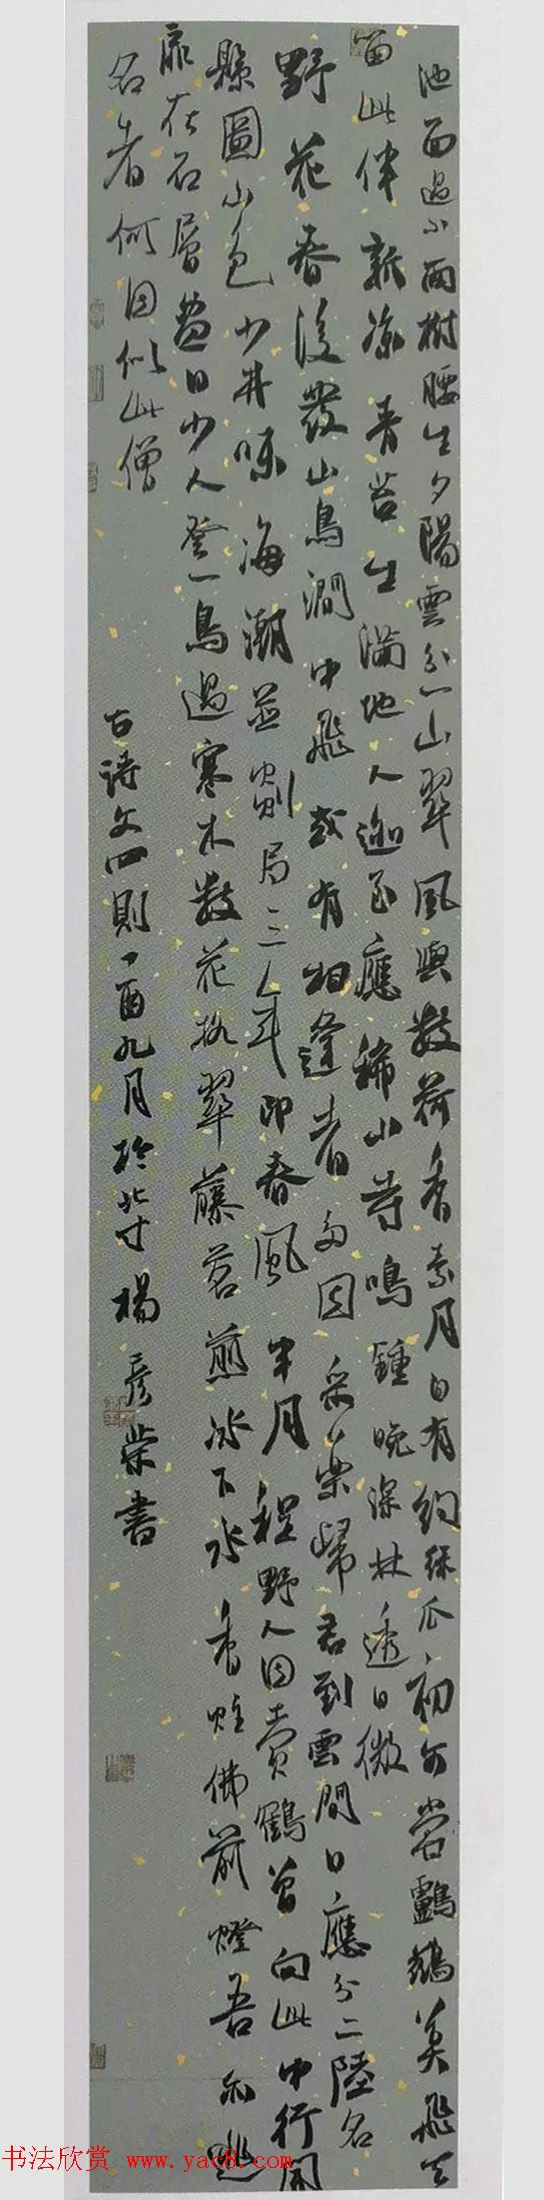 池面过小雨樹腰生夕陽雲分一山翠風與數荷香素月自有約綠瓜初可嘗鸕鶿莫飛去
留此伴新涼青苔生滿地人迹至應稀山寺鳴鍾晚深林透日微
野花春後發山鳥澗中飛或有相逢者多因采藥歸君到雲間日應分二陸名
縣圖山色少井味海潮並則局三年印春風半月程野人因賣鶴曾向此中行開
扉在石層盡日少人登一鳥過寒木數花搖翠藤茗煎冰下水香炷佛前燈吾亦逃
名者何因似此僧
古詩文四則丁酉九月於北寸楊彥榮書
书法欣赏 www.yac8.com